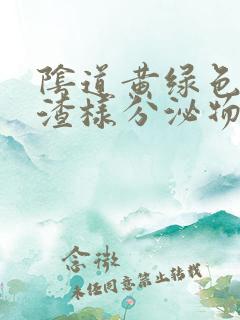 陰道黄绿色
渣樣分泌物
念微
未经同意禁止转载